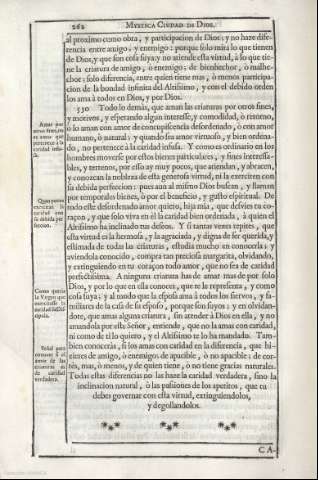 262 MYSTICA CIUDAD DE DIOS.
al proximo como obra, y participacion de Dios: y no haze dife-
rencia entre amigo, y enemigo: porque solo mira lo que tienen
de Dios, y que son cosa suya; y no atiende esta virtud, à lo que tie-
ne la criatura de amigo, ò enemigo: de bienhechor, ò malhe-
chor: solo diferencia, entre quien tiene mas, ò menos participa-
cion de la bondad infinita del Altissimo, y con el debido orden
los ama à todos en Dios, y por Dios.
530 Todo lo demàs, que aman las criaturas por otros fines,
y motivos, y esperando algun interesse, y comodidad, ò retorno,
ò lo aman con amor de concupiscencia desordenado, ò con amor
humano, ò natural: y quando sea amor virtuoso, y bien ordena-
do, no pertenece à la caridad infusa. Y como es ordinario en los
hombres moverse por estos bienes particulares, y fines interessa-
bles, y terrenos, por esso ay muy pocos, que atiendan, y abracen,
y conozcan la nobleza de esta generosa virtud, ni la exerciten con
su debida perfeccion: pues aun al mismo Dios buscan, y llaman
por temporales bienes, ò por el beneficio, y gusto espiritual. De
todo este desordenado amor quiero, hija mia, que desvies tu co-
raçon, y que solo viva en èl la caridad bien ordenada, à quien el
Altissimo ha inclinado tus deseos. Y si tantas vezes repites, que
esta virtud es la hermosa, y la agraciada, y digna de ser querida, y
estimada de todas las criaturas, estudia mucho en conocerla: y
aviendola conocido, compra tan preciosa margarita, olvidando,
y extinguiendo en tu coraçon todo amor, que no sea de caridad
perfectissima. A ninguna criatura has de amar mas de por solo
Dios, y por lo que en ella conoces, que te le representa, y como
cosa suya: y al modo que la esposa ama à todos los siervos, y fa-
miliares de la casa de su esposo, porque son suyos: y en olvidan-
dote, que amas alguna criatura, sin atender à Dios en ella, y no
amandola por este Señor, entiende, que no la amas con caridad,
ni como de ti lo quiero, y el Altissimo te lo ha mandado. Tam-
bien conoceràs, si los amas con caridad en la diferencia, que hi-
zieres de amigo, ò enemigo: de apacible, ò no apacible: de cor-
tès, mas, ò menos, y de quien tiene, ò no tiene gracias naturales.
Todas estas diferencias no las haze la caridad verdadera, sino la
inclinacion natural, ò las passiones de los apetitos, que tu
debes governar con esta virtud, extinguiendolos,
y degollandolos.
*** *** ***
CA-